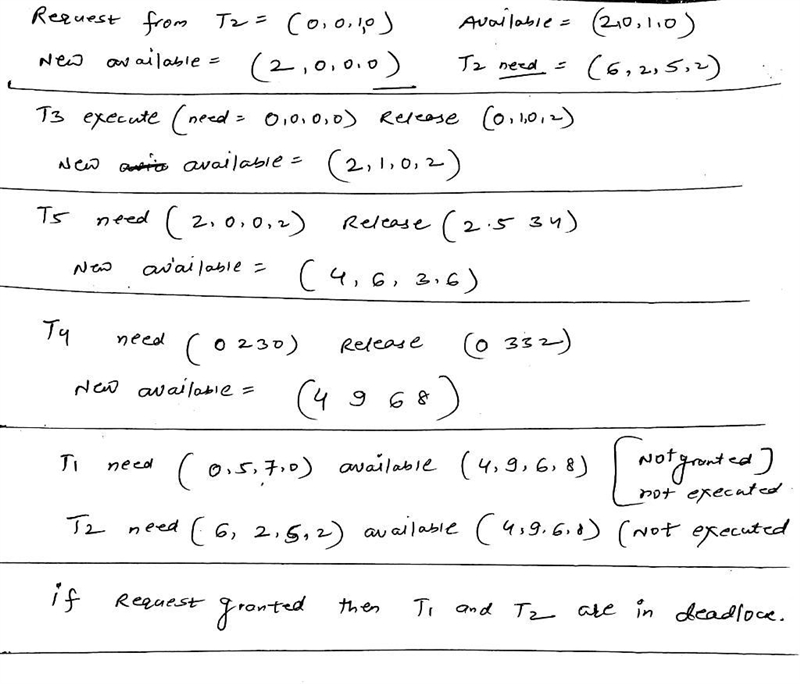 Request from T2 = (0,0,1,0) Available = (2,0,1,0)
New available = (2,0,0,0) T2 need = (6,2,5,2)
T3 execute (need = 0,0,0,0) Release (0,1,0,2)
New available = (2,1,0,2)
T5 need (2,0,0,2) Release (2.5 34)
New available = (4,6,3,6)
T4 need (0 2 3 0) Release (0 332)
New available = (4 9 6 8)
T1 need (0,5,7,0) available (4,9,6,8) [Not granted]
not executed
T2 need (6, 2,5,2) available (4,9.6,8) (Not executed
if Request granted then T1 and T2 are in deadlock.